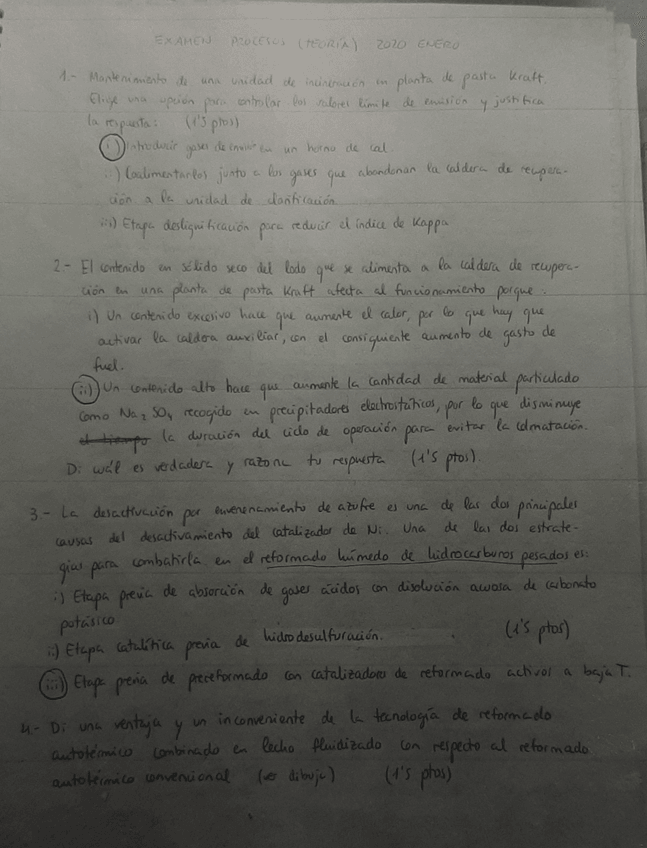 EXAMEN PROCESOS (TEORÍA) 2020 ENERO
1.- Mantenimiento de una unidad de incineración en planta de pasta Kraft.
Elige una opción para controlar los valores límite de emisión y justifica
la respuesta: (1'5 ptos)
i) Introducir gases de en un horno de cal.
ii) Coalimentarlos junto a los gases que abandonan la caldera de recupera-
ción a la unidad de clarificación.
iii) Etapa deslignificación para reducir el índice de Kappa
2.- El contenido en sólido seco del lodo que se alimenta a la caldera de recupera-
ción en una planta de pasta Kraft afecta al funcionamiento porque:
i) Un contenido excesivo hace que aumente el calor, por lo que hay que
activar la caldera auxiliar, con el consiguiente aumento de gasto de
fuel.
ii) Un contenido alto hace que aumente la cantidad de material particulado
como Na2SO4 recogido en precipitadores electrostáticos, por lo que disminuye
el tiempo la duración del ciclo de operación para evitar la colmatación.
Di cuál es verdadera y razona tu respuesta (1'5 ptos).
3.- La desactivación por envenenamiento de azufre es una de las dos principales
causas del desactivamiento del catalizador de Ni. Una de las dos estrate-
gias para combatirla en el reformado húmedo de hidrocarburos pesados es:
i) Etapa previa de absorción de gases ácidos con disolución acuosa de carbonato
potásico
ii) Etapa catalítica previa de hidrodesulfuración. (1'5 ptos)
iii) Etapa previa de prereformado con catalizadores de reformado activos a baja T.
4.- Di una ventaja y un inconveniente de la tecnología de reformado
autotérmico combinado en lecho fluidizado con respecto al reformado
autotérmico convencional (ver dibujo) (1'5 ptos)